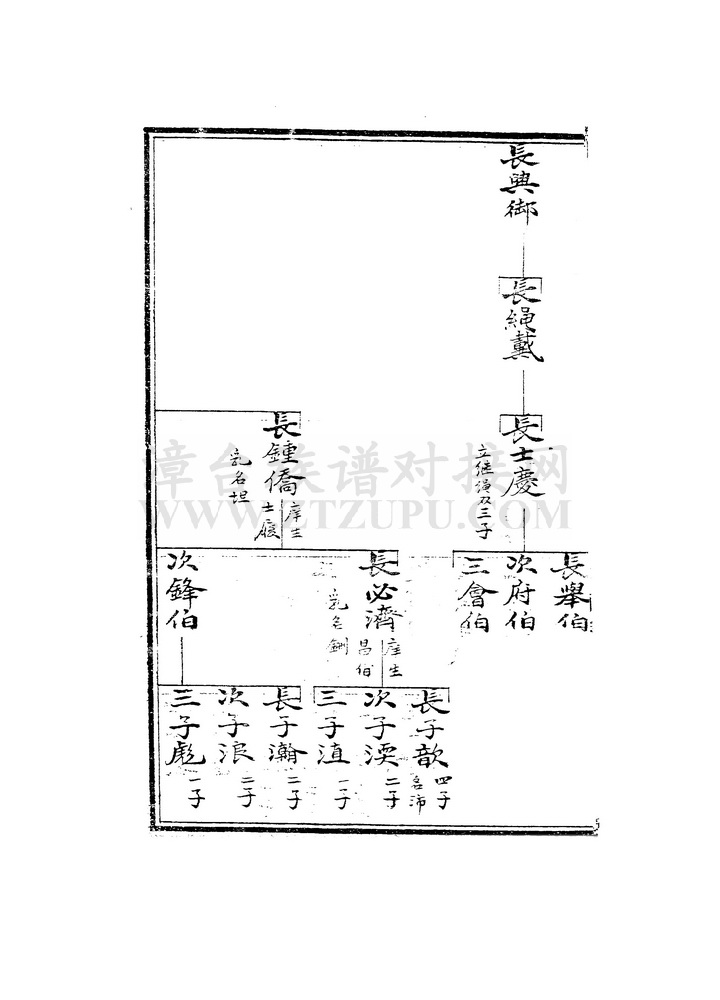 長興御
長繩戴
長士慶
立继繩双三子
長舉伯
次府伯
三會伯
長鍾僑
庠生
士
乳名坦
長必濟
庠生
昌伯
乳名
次鋒伯
長子歆
四子
名沛
次子浸
二子
三子淔
一子
長子瀚
二子
次子浪
二子
三子彪
一子
章台族谱对接网
WWW.ZTZUPU.COM